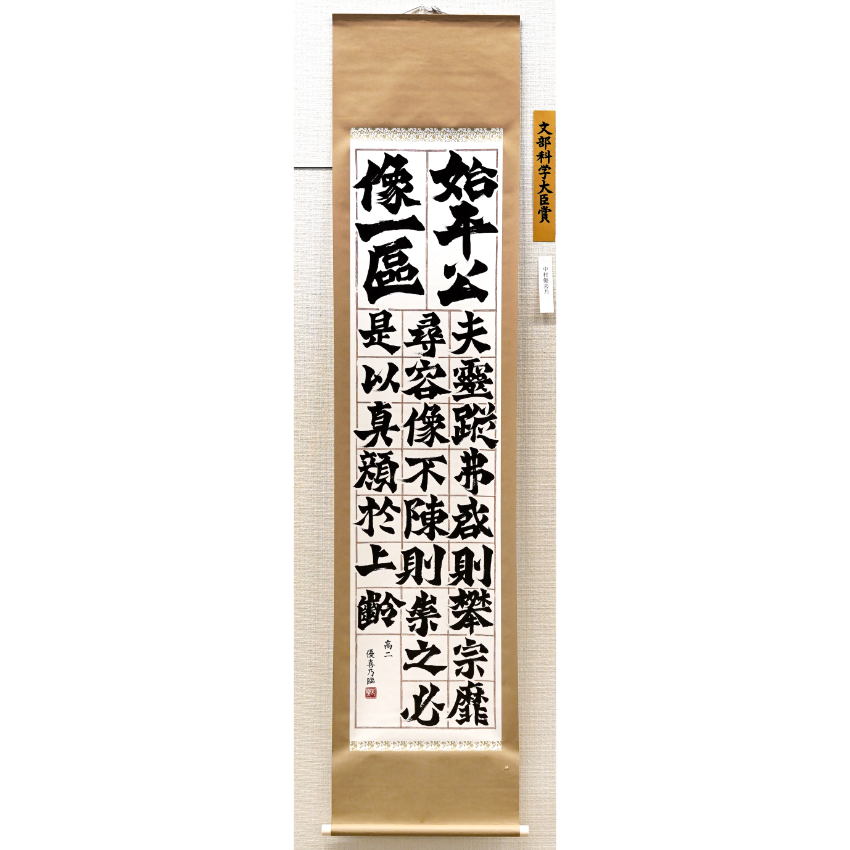 始平公
像一區
夫靈蹤弗啓則攀宗靡
尋容像不陳則崇之必
是以真顔於上齡
高二
優喜乃臨
文部科学大臣賞